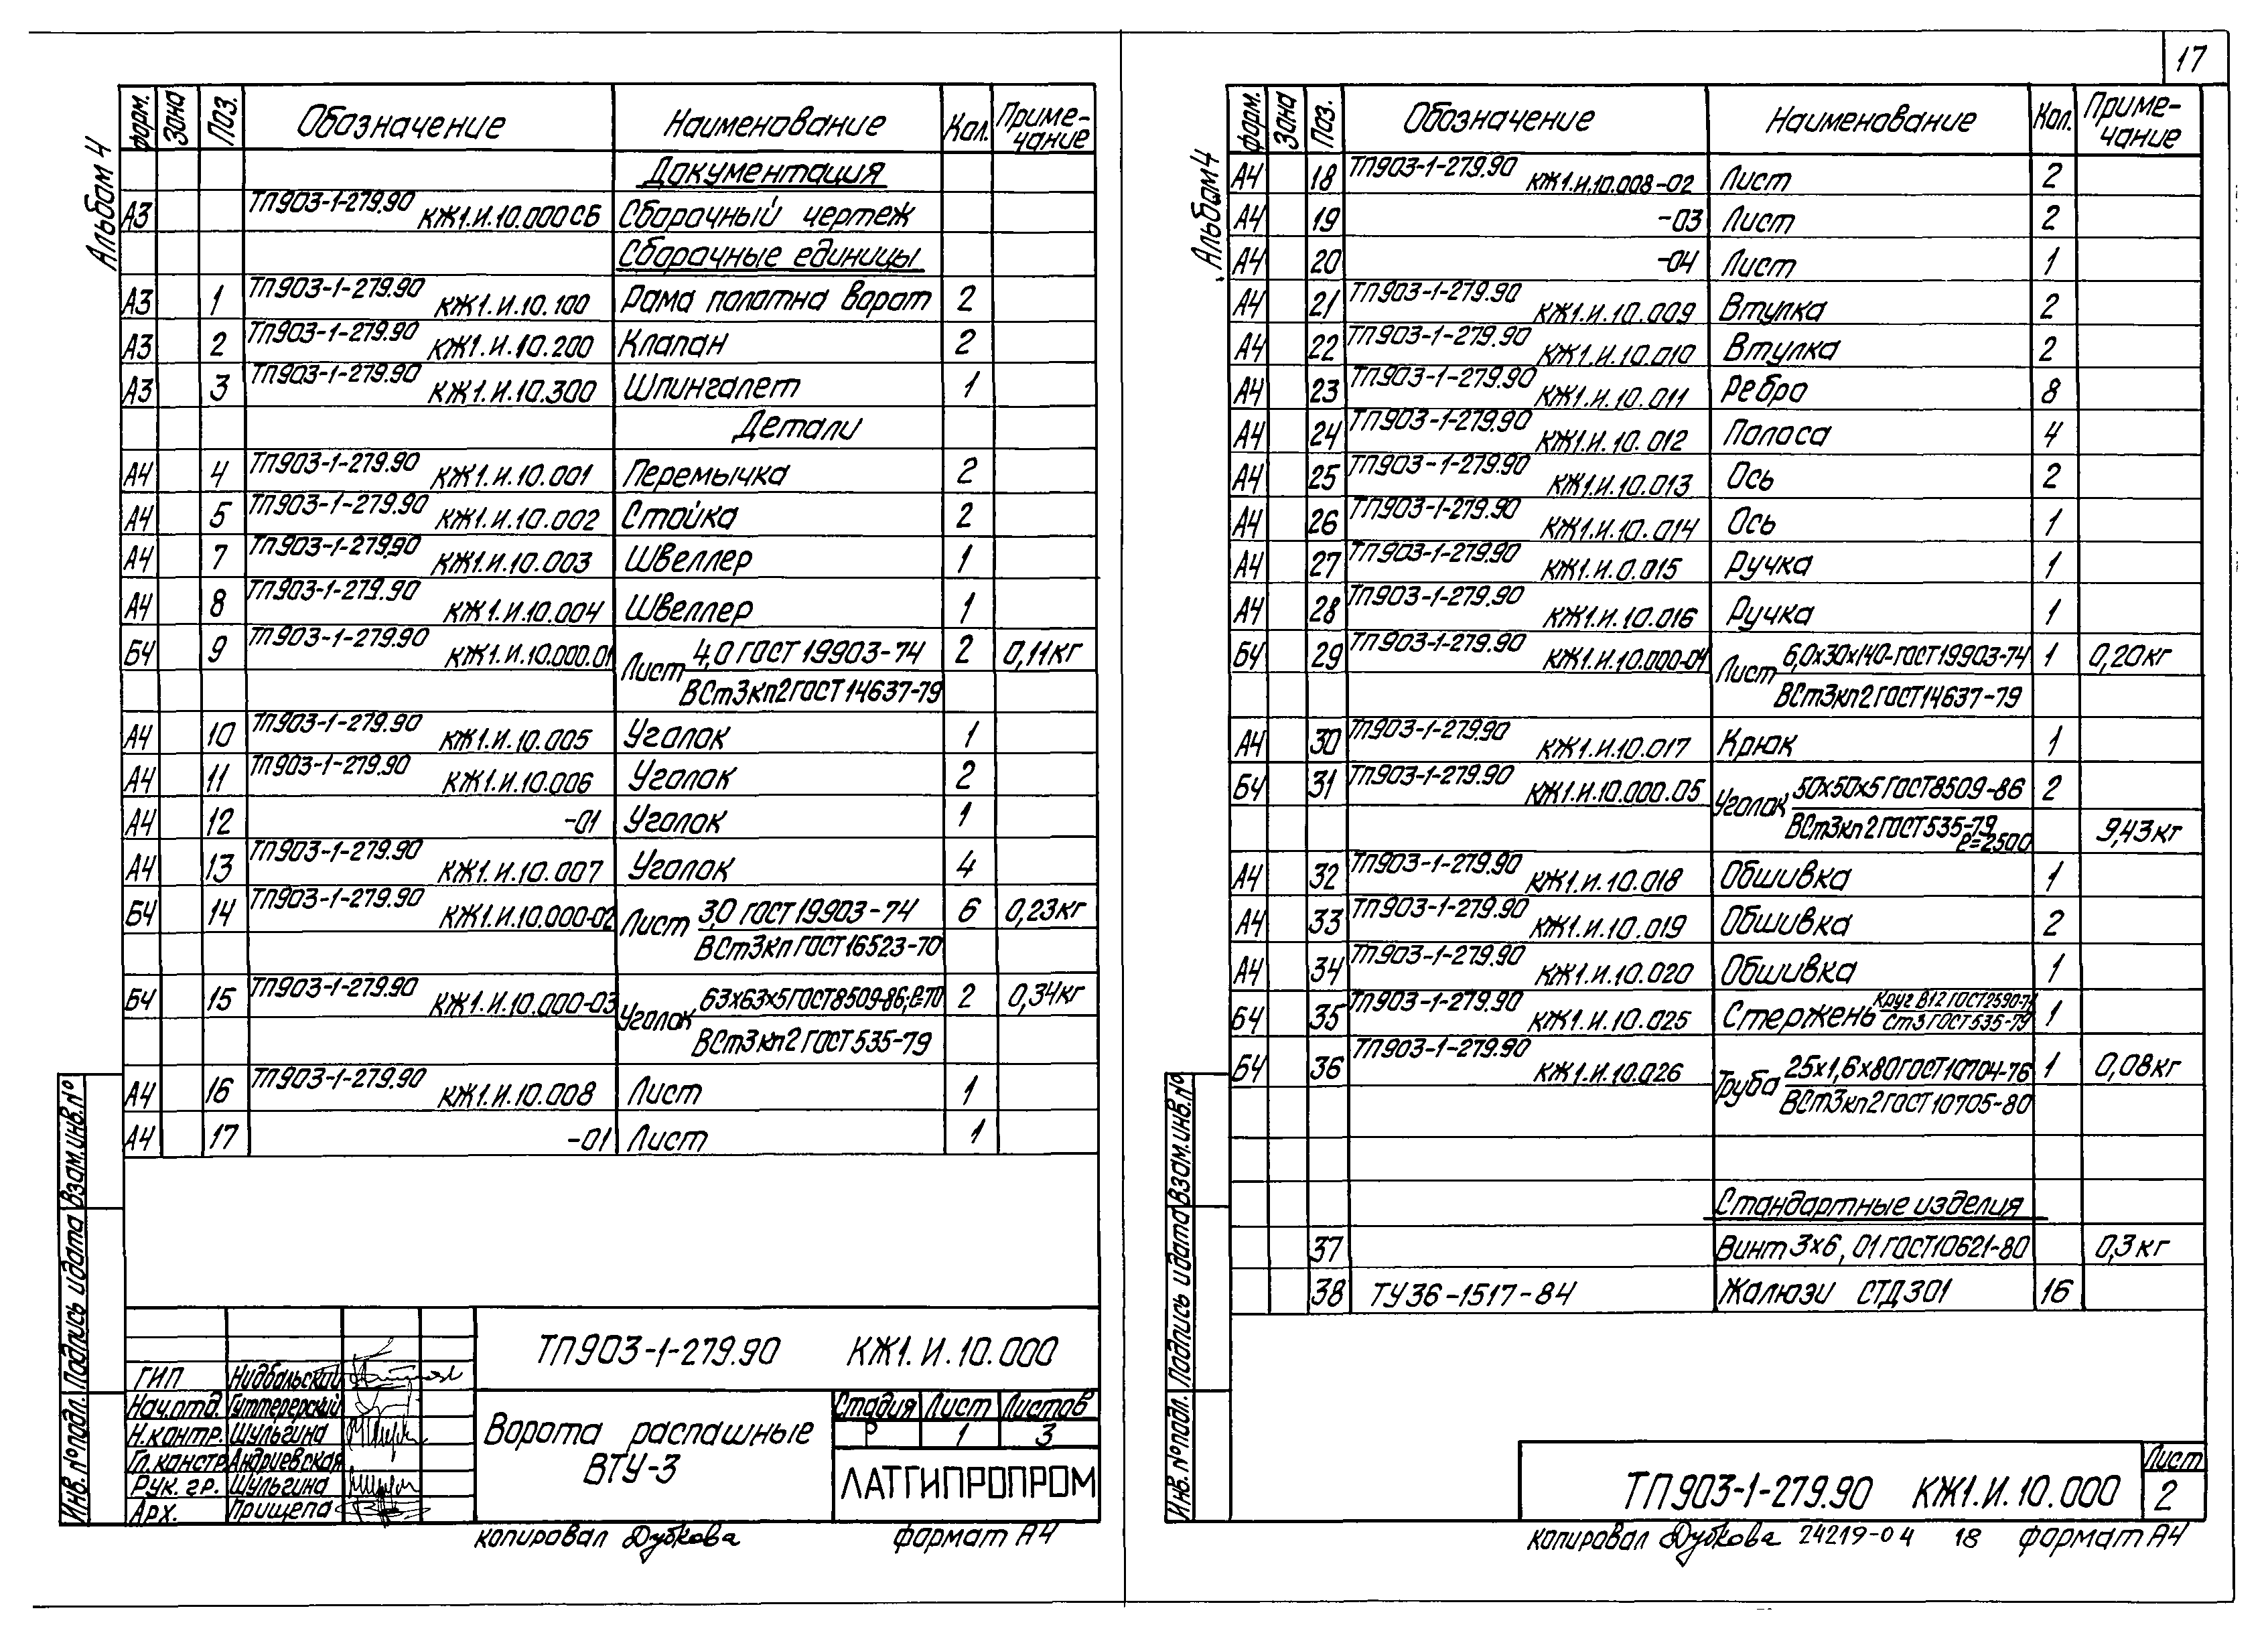 17
Альбом 4
Форм. Зона Поз. Обозначение Наименование Кол. Примечание
Документация
А3 ТП903-1-279.90 КЖ1.И.10.000СБ Сборочный чертеж
Сборочные единицы
А3 1 ТП903-1-279.90 КЖ1.И.10.100 Рама полотна ворот 2
А3 2 ТП903-1-279.90 КЖ1.И.10.200 Клапан 2
А3 3 ТП903-1-279.90 КЖ1.И.10.300 Шпингалет 1
Детали
А4 4 ТП903-1-279.90 КЖ1.И.10.001 Перемычка 2
А4 5 ТП903-1-279.90 КЖ1.И.10.002 Стойка 2
А4 7 ТП903-1-279.90 КЖ1.И.10.003 Швеллер 1
А4 8 ТП903-1-279.90 КЖ1.И.10.004 Швеллер 1
БЧ 9 ТП903-1-279.90 КЖ1.И.10.000.01 Лист 4,0 ГОСТ 19903-74 2 0,11кг
ВСт3кп2 ГОСТ 14637-79
А4 10 ТП903-1-279.90 КЖ1.И.10.005 Уголок 1
А4 11 ТП903-1-279.90 КЖ1.И.10.006 Уголок 2
А4 12 -01 Уголок 1
А4 13 ТП903-1-279.90 КЖ1.И.10.007 Уголок 4
БЧ 14 ТП903-1-279.90 КЖ1.И.10.000-02 Лист 3,0 ГОСТ 19903-74 6 0,23кг
ВСт3кп ГОСТ 16523-70
БЧ 15 ТП903-1-279.90 КЖ1.И.10.000-03 Уголок 63х63х5 ГОСТ 8509-86; ℓ=70 2 0,34кг
ВСт3кп2 ГОСТ 535-79
А4 16 ТП903-1-279.90 КЖ1.И.10.008 Лист 1
А4 17 -01 Лист 1
Инв. № подл. Подпись и дата Взам. инв. №
ТП903-1-279.90 КЖ1.И.10.000
ГИП Нидбальский
Нач.отд. Гуттерерский
Н.контр. Шульгина
Гл.констр Андриевская
Рук. гр. Шульгина
Арх. Прищепа
Ворота распашные
ВТУ-3
Стадия Лист Листов
Р 1 3
ЛАТГИПРОПРОМ
копировал Дубкова формат А4
Альбом 4
Форм. Зона Поз. Обозначение Наименование Кол. Примечание
А4 18 ТП903-1-279.90 КЖ1.И.10.008-02 Лист 2
А4 19 -03 Лист 2
А4 20 -04 Лист 1
А4 21 ТП903-1-279.90 КЖ1.И.10.009 Втулка 2
А4 22 ТП903-1-279.90 КЖ1.И.10.010 Втулка 2
А4 23 ТП903-1-279.90 КЖ1.И.10.011 Ребро 8
А4 24 ТП903-1-279.90 КЖ1.И.10.012 Полоса 4
А4 25 ТП903-1-279.90 КЖ1.И.10.013 Ось 2
А4 26 ТП903-1-279.90 КЖ1.И.10.014 Ось 1
А4 27 ТП903-1-279.90 КЖ1.И.0.015 Ручка 1
А4 28 ТП903-1-279.90 КЖ1.И.10.016 Ручка 1
БЧ 29 ТП903-1-279.90 КЖ1.И.10.000-04 Лист 6,0х30х140-ГОСТ 19903-74 1 0,20кг
ВСт3кп2 ГОСТ 14637-79
А4 30 ТП903-1-279.90 КЖ1.И.10.017 Крюк 1
БЧ 31 ТП903-1-279.90 КЖ1.И.10.000.05 Уголок 50х50х5 ГОСТ 8509-86 2
ВСт3кп2 ГОСТ 535-79 ℓ=2500 9,43кг
А4 32 ТП903-1-279.90 КЖ1.И.10.018 Обшивка 1
А4 33 ТП903-1-279.90 КЖ1.И.10.019 Обшивка 2
А4 34 ТП903-1-279.90 КЖ1.И.10.020 Обшивка 1
БЧ 35 ТП903-1-279.90 КЖ1.И.10.025 Стержень Круг В12 ГОСТ 2590-71 1
Ст3 ГОСТ 535-79
БЧ 36 ТП903-1-279.90 КЖ1.И.10.026 Труба 25х1,6х80 ГОСТ 10704-76 1 0,08кг
ВСт3кп2 ГОСТ 10705-80
Стандартные изделия
37 Винт 3х6, 01 ГОСТ 10621-80 0,3кг
38 ТУ36-1517-84 Жалюзи СТД 301 16
Инв. № подл. Подпись и дата Взам. инв. №
ТП903-1-279.90 КЖ1.И.10.000
Лист
2
копировал Дубкова 24219-04 18 формат А4